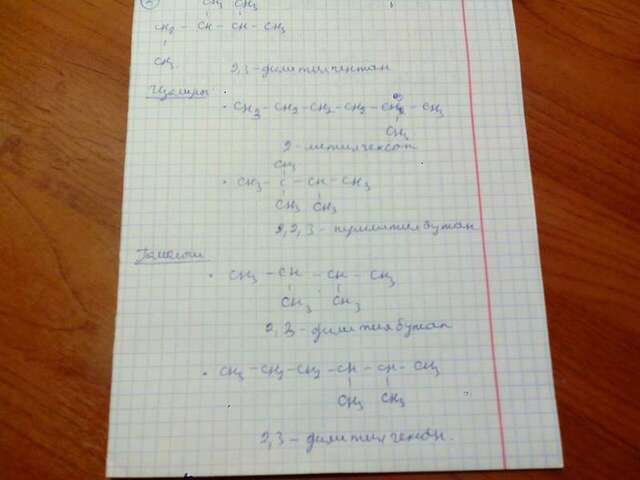 CH3 CH3
CH2 – CH – CH – CH3
CH3
2,3 – диметилпентан
Изомеры
• CH3 – CH2 – CH2 – CH2 – CH – CH3
CH3
2 – метилгексан
CH3
• CH3 – C – CH – CH3
CH3 CH3
2,2,3 – триметилбутан
Гомологи
• CH3 – CH – CH – CH3
CH3 CH3
2,3 – диметилбутан
• CH3 – CH2 – CH2 – CH – CH – CH3
CH3 CH3
2,3 – диметилгексан.